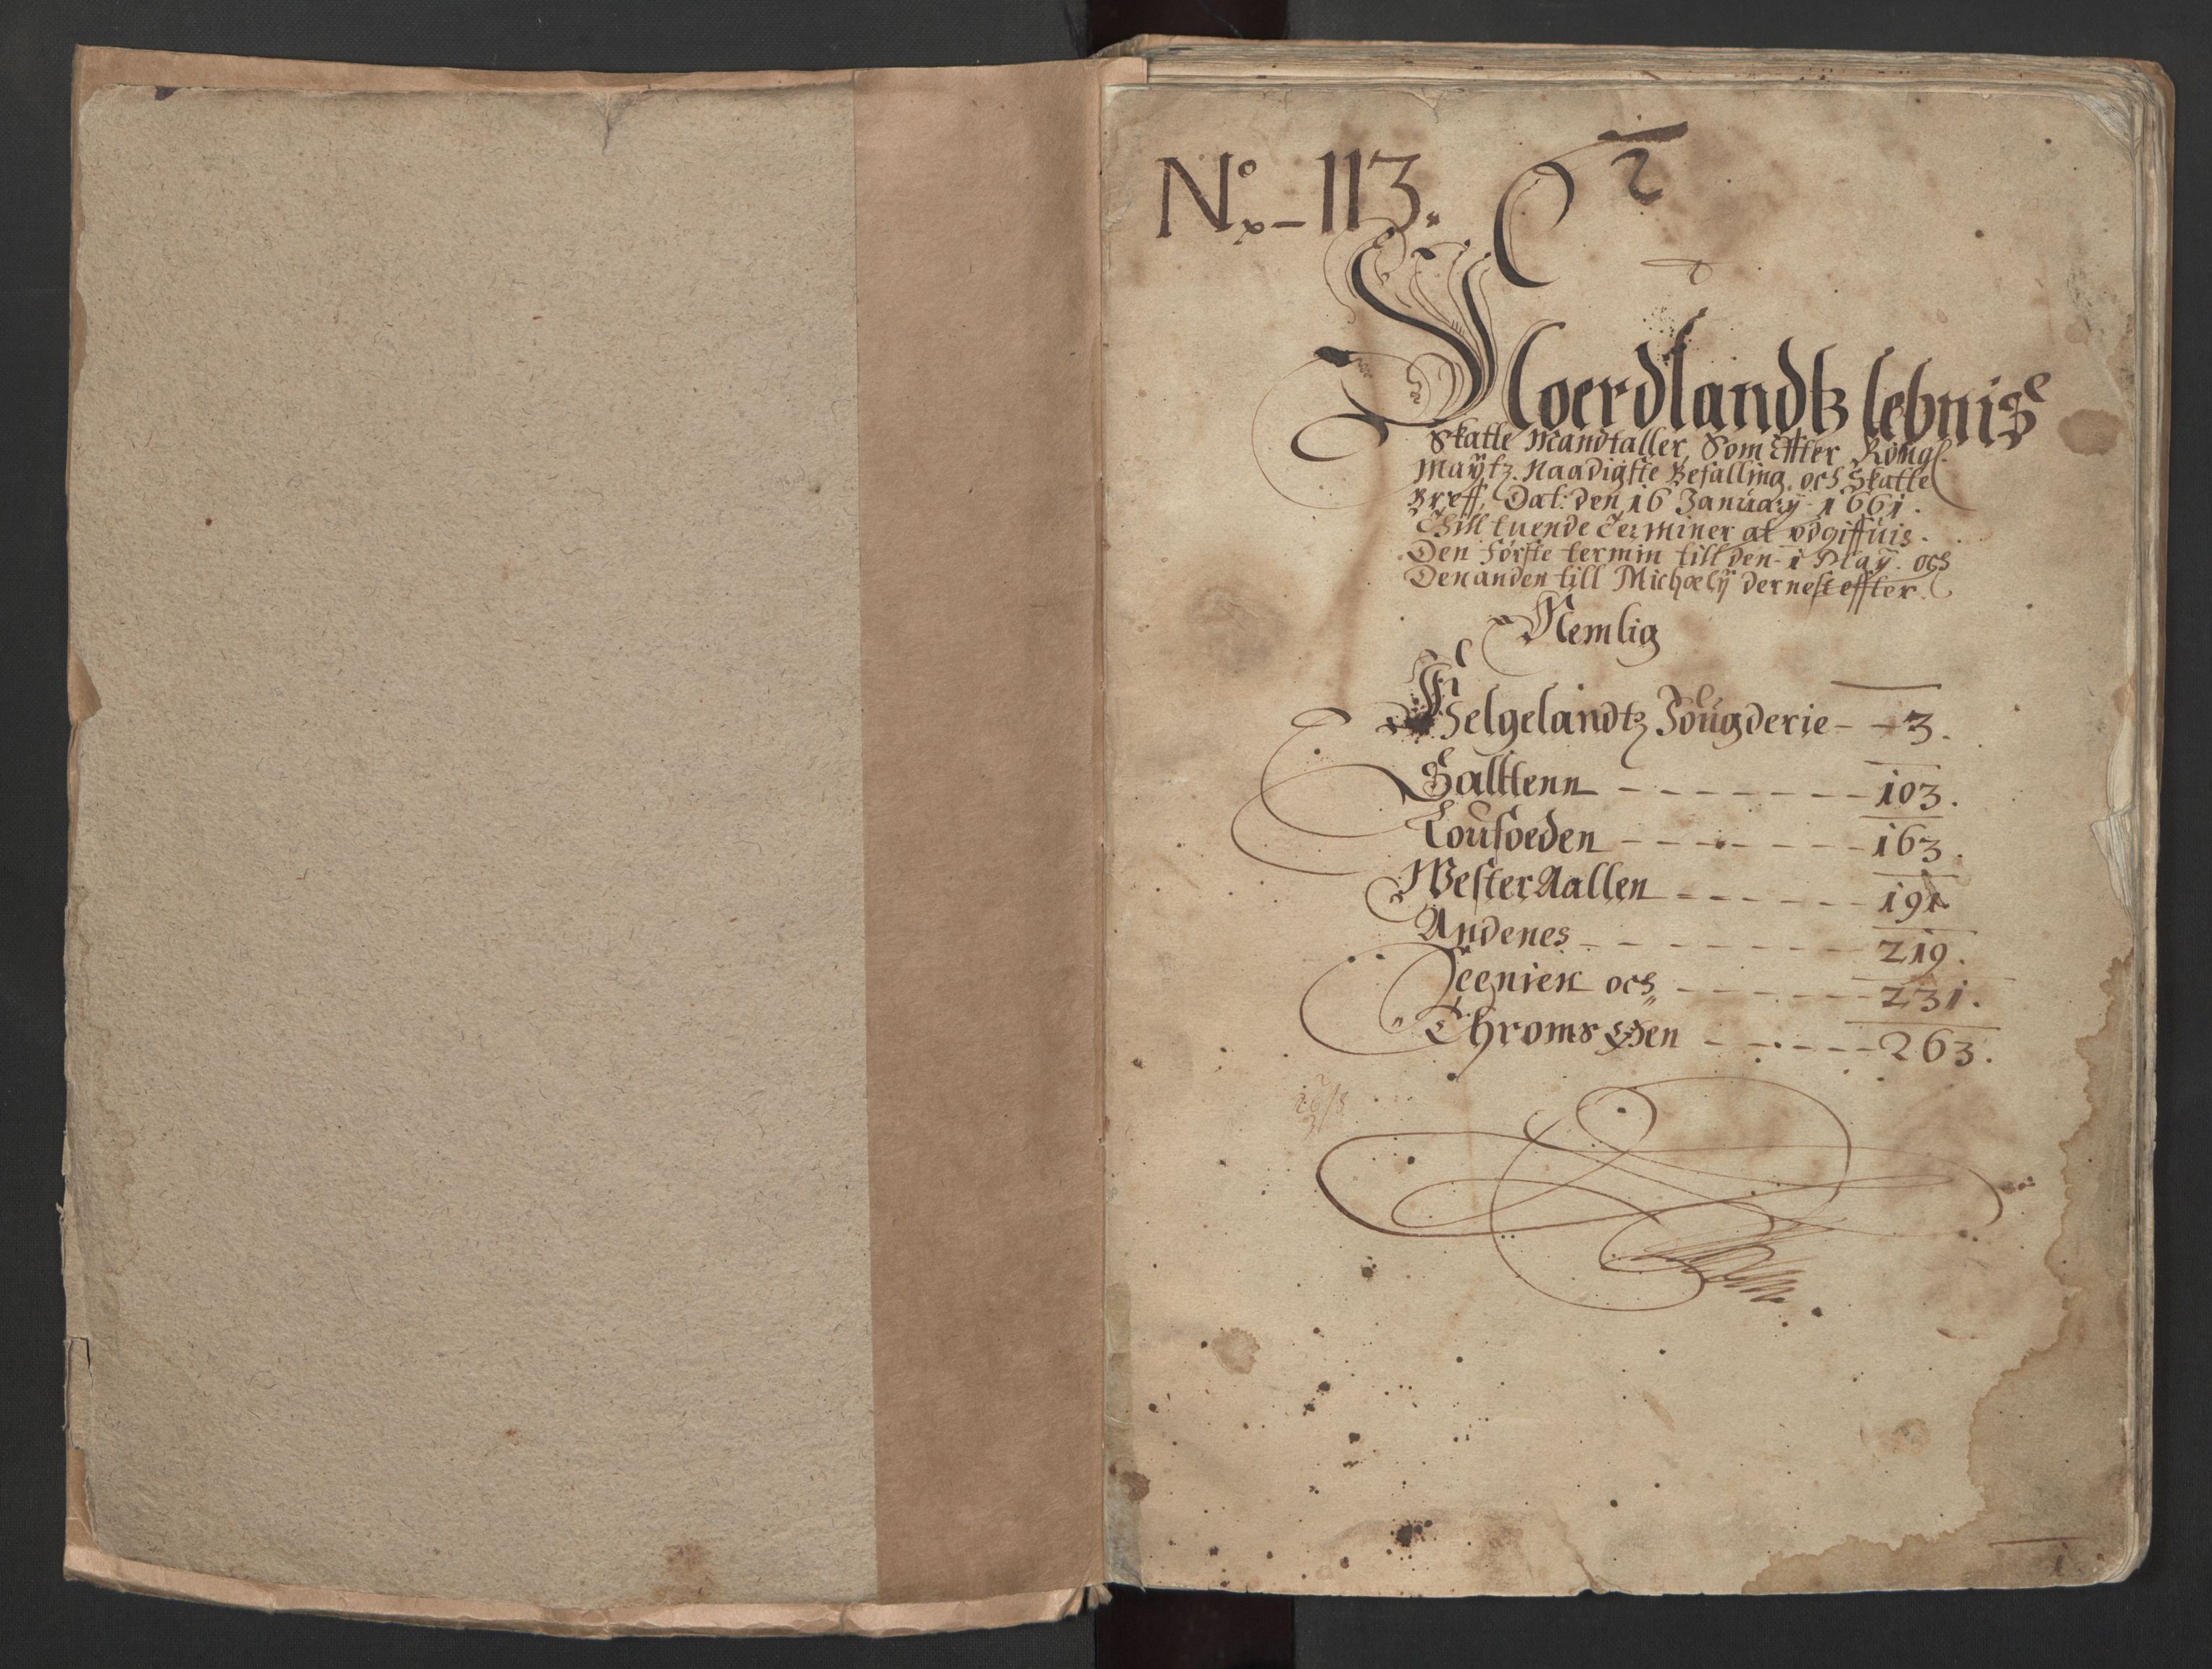 No - 113.
2
Noerdlandtz lehnis
Skatte Mandtaller, Som Effter Kongl
Maÿtz. Naadigste Befalling, och Skatte
Breff, Dat: den 16 Januarÿ 1661.
Thill tuende Terminer at vdgiffuis.
Den förste termin till den 1 Maÿ. och
Den anden till Michælÿ dernest effter.
Nemlig
Helgelandtz Fougderie - - 3.
Salttenn - - - - - - - 103.
Loufoeden - - - - - - - 163.
WesterAallen - - - - - - 191
Andenes - - - - - - - 219.
Seenien och - - - - - - 231.
Thromsøen - - - - - - 263.
1